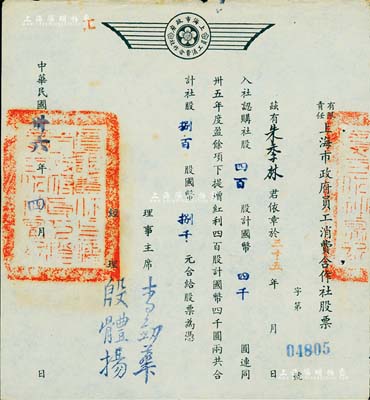 上海市政府
員工消費合作社
有限責任上海市政府員工消費合作社股票
字第 04805 號
茲有朱季林君依章於三十五年 月 日
入社認購社股四百股計國幣四千圓連同
卅五年度盈餘項下提增紅利四百股計國幣四千圓兩共合
計社股捌百股國幣捌千元合給股票為憑
理事主席 李劍華
經理 殷體揚
中華民國卅六年四月 日